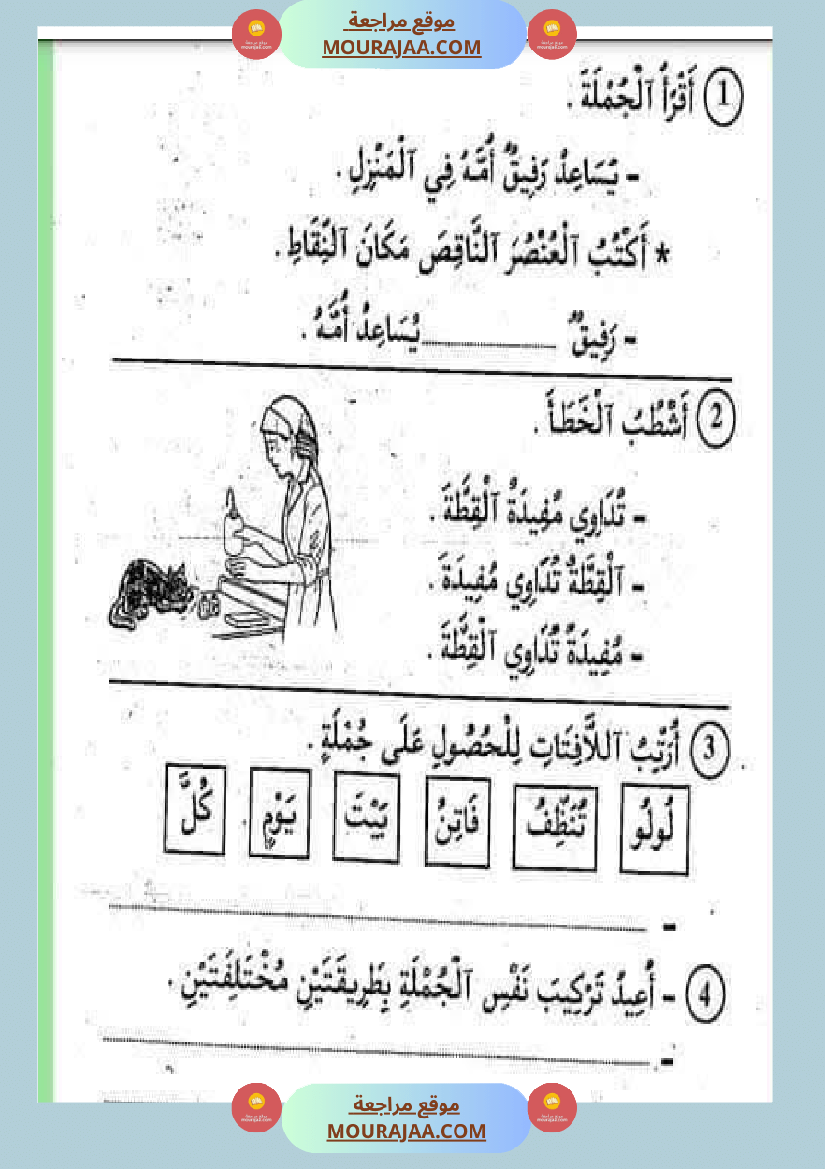 موقع مراجعة
MOURAJAA.COM
1 أَقْرَأُ ٱلْجُمْلَةَ .
- يُسَاعِدُ رَفِيقٌ أُمَّهُ فِي ٱلْمَنْزِلِ .
* أَكْتُبُ ٱلْعُنْصُرَ ٱلنَّاقِصَ مَكَانَ ٱلنِّقَاطِ .
- رَفِيقٌ ............ يُسَاعِدُ أُمَّهُ .
2 أَشْطُبُ ٱلْخَطَأَ .
- تُدَاوِي مُفِيدَةُ ٱلْقِطَّةَ .
- ٱلْقِطَّةُ تُدَاوِي مُفِيدَةَ .
- مُفِيدَةُ تُدَاوِي ٱلْقِطَّةَ .
3 أُرَتِّبُ ٱللاَّفِتَاتِ لِلْحُصُولِ عَلَى جُمْلَةٍ .
لُولُو تُنَظِّفُ فَاتِنُ بَيْتَ يَوْمٍ . كُلَّ
4 - أُعِيدُ تَرْكِيبَ نَفْسِ ٱلْجُمْلَةِ بِطَرِيقَتَيْنِ مُخْتَلِفَتَيْنِ .
موقع مراجعة
MOURAJAA.COM